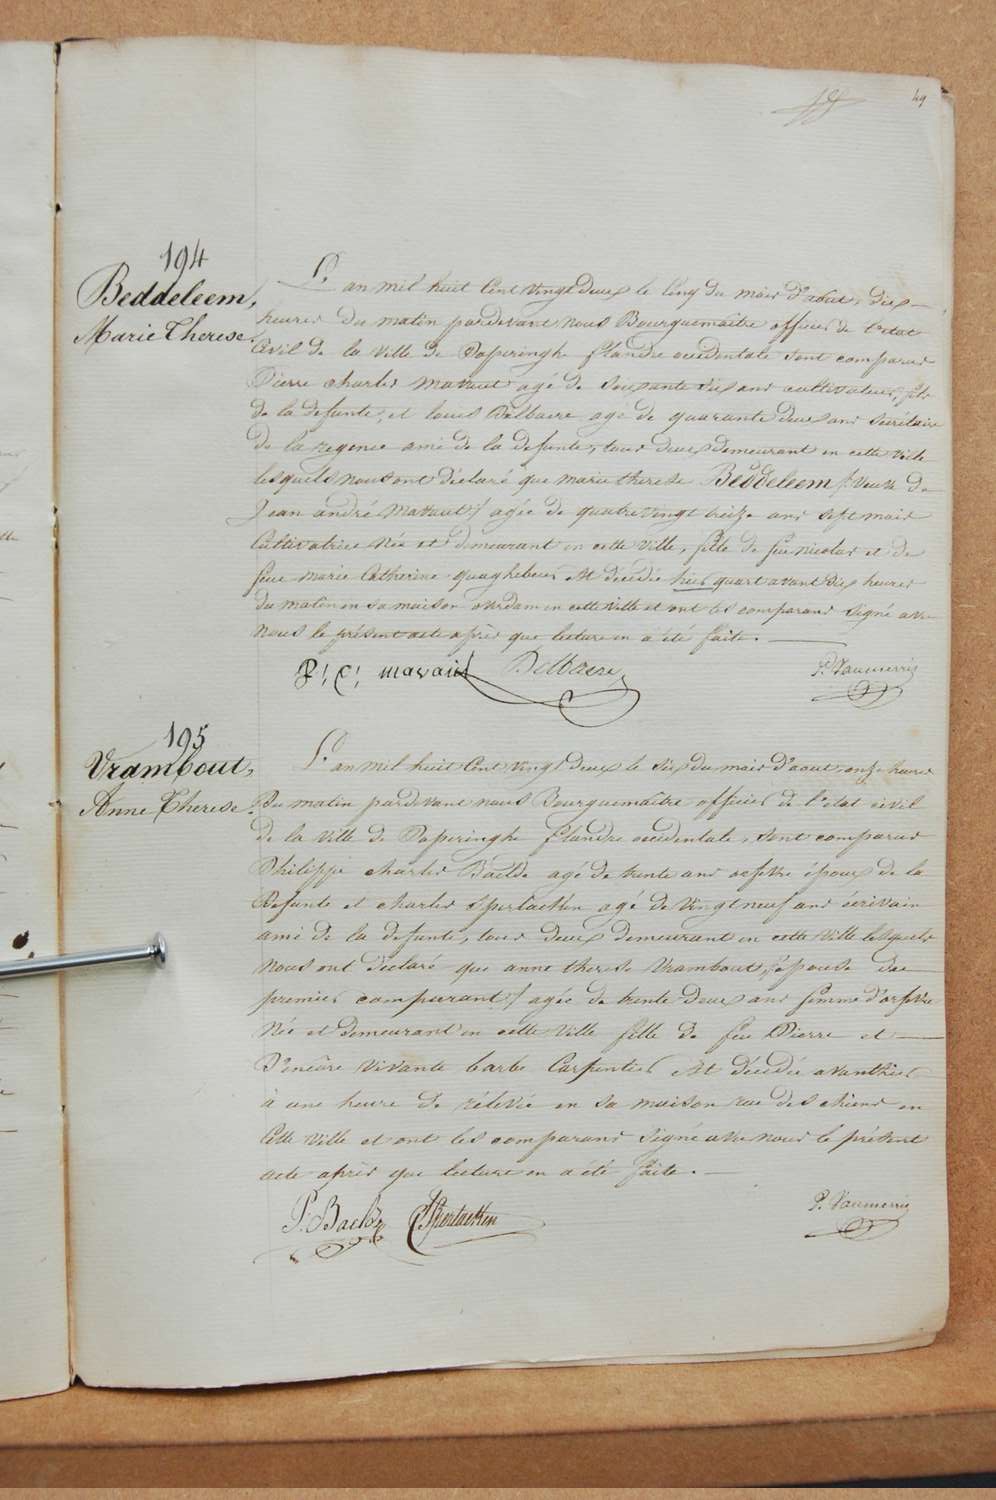 49
194
Beddeleem,
Marie Therese.
L'an mil huit Cent vingt deux le Cinq du mois d'aout, dix
heures du matin pardevant nous Bourguemaitre officier de l'etat
Civil de la ville de Poperinghe flandre occidentale sont comparus
Pierre charles mavaut agé de soixante six ans cultivateur, fils
de la defunte, et louis Delbaere agé de quarante deux ans secrétaire
de la regence ami de la defunte, tous deux demeurant en cette ville
lesquels nous ont déclaré que marie therese Beddeleem / Veuve de
Jean andré Mavaut / agée de quatre vingt treize ans sept mois
Cultivatrice Née et demeurant en cette ville, fille de feu nicolas et de
feue marie Catherine quaghebeur est décédée hier quart avant dix heures
du matin en sa maison ouvdam en cette ville et ont les comparans signé avec
nous le présent acte après que lecture en a été faite.
P: C: mavaut Delbaere P. Vanmerris
195
Vrambout,
Anne Therese.
L'an mil huit Cent vingt deux le six du mois d'aout, onze heures
Du matin pardevant nous Bourguemaitre officier de l'état civil
de la ville de Poperinghe flandre occidentale, sont comparus
Philippe charles Baelde agé de trente ans orfevre époux de la
Defunte et charles Sperlaekken agé de vingt neuf ans écrivain
ami de la defunte, tous deux demeurant en cette ville lesquels
nous ont déclaré que anne therese Vrambout, / épouse du
premier comparant / agée de trente deux ans femme d'orfevre
Née et demeurant en cette ville fille de feu Pierre et
D'encore vivante barbe Carpentier est décédée avanthier
à une heure de rélevée en sa maison rue des chiens en
Cette ville et ont les comparans signé avec nous le présent
acte après que lecture en a été faite.
P. Baelde C Sperlaekken P. Vanmerris